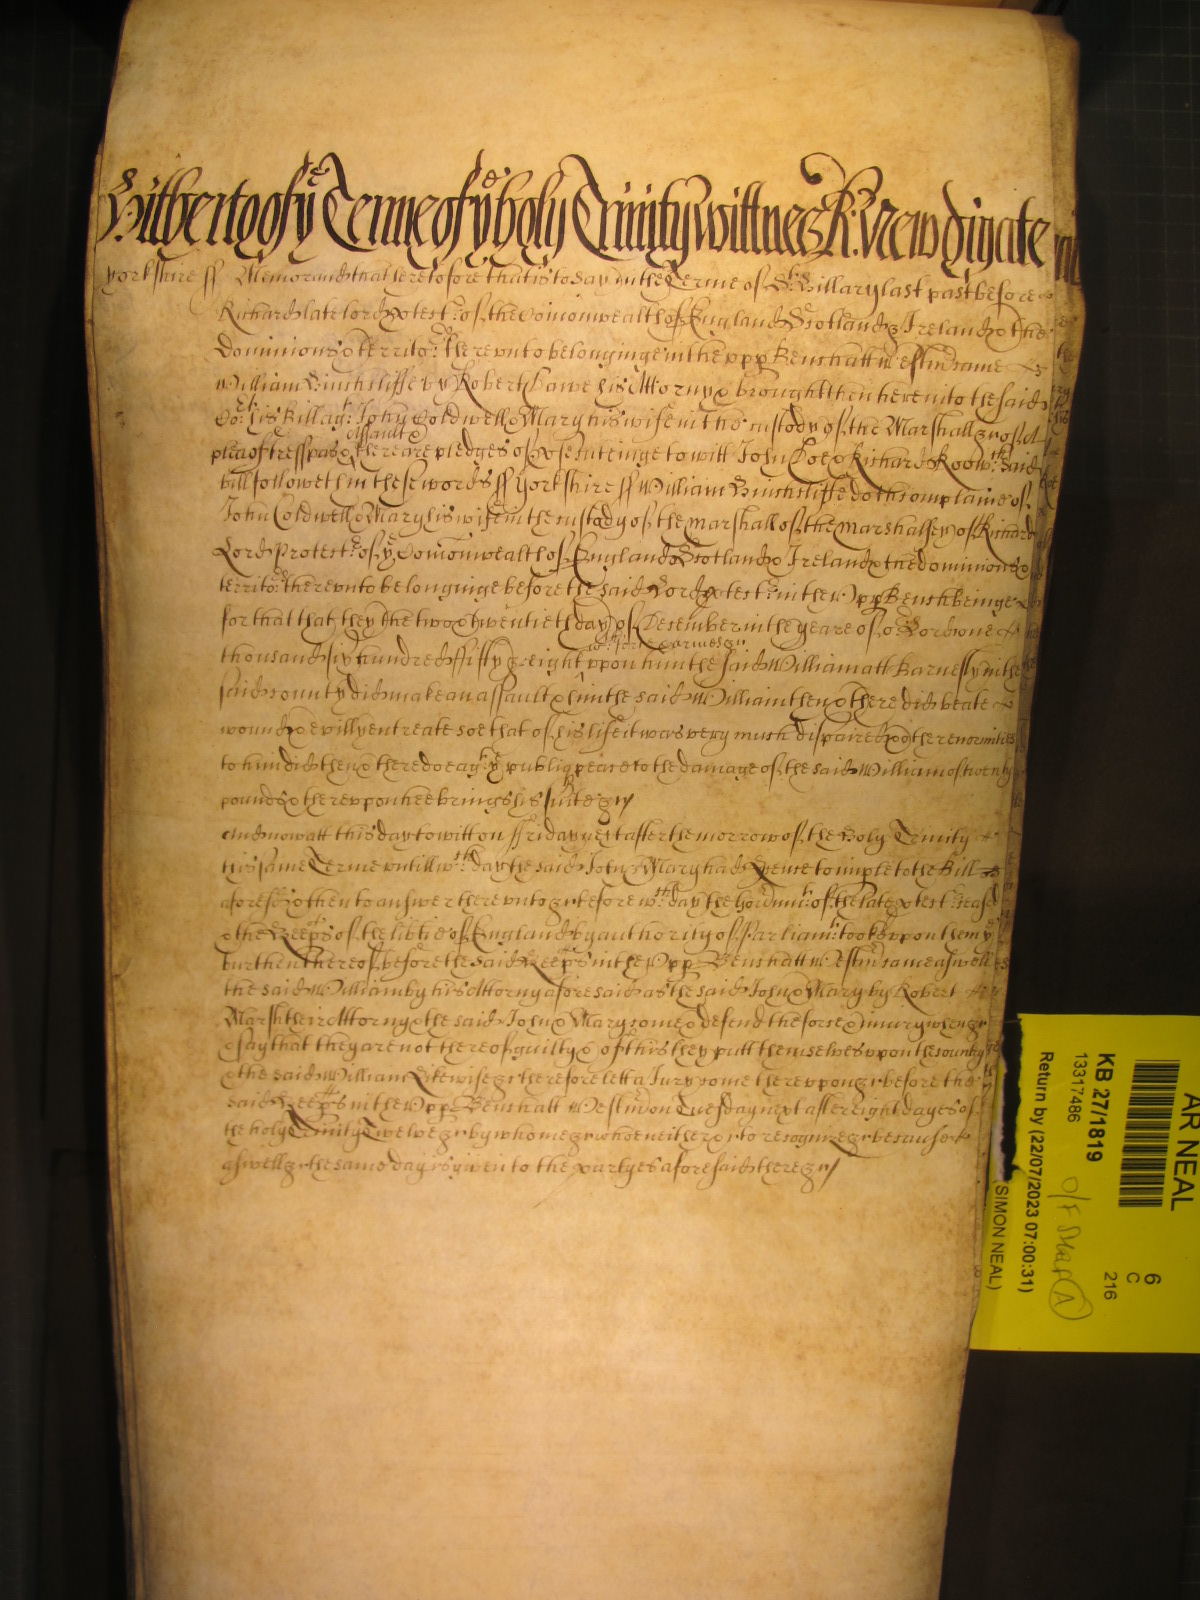 Gilbert of ye Terme of ye holy Trinity wittnes R: Newdigate
Yorkshire ss Memorand that heretofore that is to say in the Terme of St: Hillary last past before
Richard late lord Protectr: of the Comonwealth of England Scotland & Ireland & the
Dominions & territor: thereunto belonginge in the upp Bench att Westm came
William Hinchcliffe by Robert Hawe his Attorny & brought then here into the said
Cort: his Bill agt: John Coldwell & Mary his wife in the custody of the Marshall &c of a
plea of tresspas & assault & there are pledges of prosecuteinge to witt John Doe & Richard Roo wch: said
bill followeth in these words ss Yorkshire ss William Hinchcliffe doth complaine of
John Coldwell & Mary his wife in the custody of the marshall of the marshalsey of Richard
Lord Protectr: of ye Comonwealth of England Scotland & Ireland & the dominions &
territor: thereunto belonginge before the said Lord Protectr: in the Upp Bench beinge
for that that they the two & twentieth day of December in the yeare of or Lord one
thousand six hundred fifty & eight wth force & armes &c: uppon him the said William att Barnesly in the
said county did make an assault & him the said William then & there did beate
wound & evilly entreate soe that of his life it was very much dispaired & other enormities
to him did then & there doe agt: ye publiq peace to the damage of the said William of twenty
pounds & thereuppon hee brings his suite &c
And now att this day to witt on Friday next after the morrow of the Holy Trinity
this same Terme untill wch: day the said John & Mary had Licence to imple to the Bill
aforesd & then to answer thereunto &c before wch: day the Governmt: of the late Protectr: ceased
& the Keeps of the libtie of England by authority of Parliamt: tooke uppon them ye
burthen thereof before the said Keeps in the Upp Bench att Westm came aswell
the said William by his Attorny aforesaid as the said John & Mary by Robert
Marsh their Attorny & the said John & Mary come & defend the force & injury when &c
& say that they are not thereof guilty & of this they putt themselves uppon the country
& the said William Likewise &c therefore lett a Jury come thereuppon &c before the
said Keeps in the Upp Bench att Westm on Tuesday next after eight dayes of
the holy Trinity Twelve &c by whome &c whoe neither &c to recognize &c because
aswell &c the same day is given to the partyes aforesaid there &c
AR NEAL
6
C
216
KB 27/1819
13317486
Return by (22/07/2023 07:00:31)
(SIMON NEAL)
O/F Map A